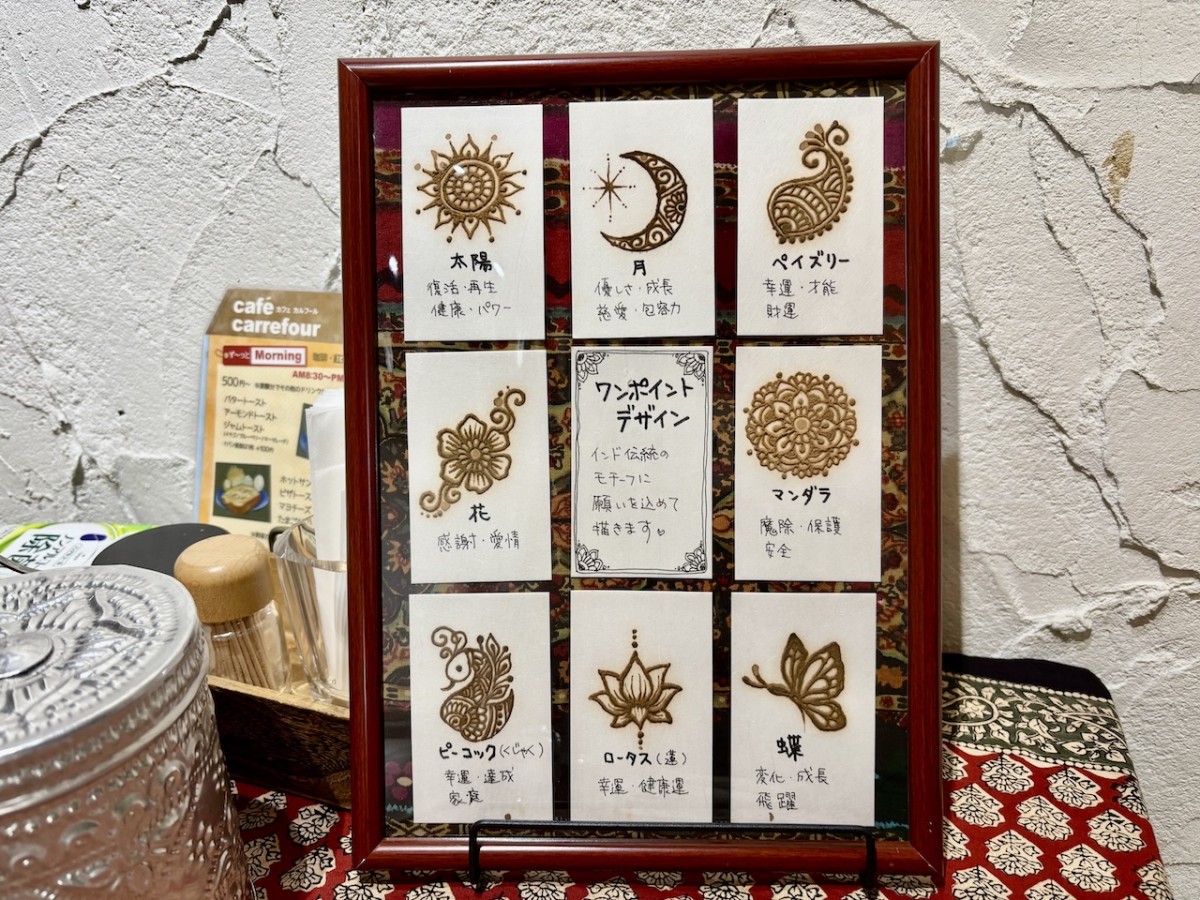 太陽
復活・再生
健康・パワー
月
優しさ・成長
慈愛・包容力
ペイズリー
幸運・才能
財運
花
感謝・愛情
ワンポイント
デザイン
インド伝統の
モチーフに
願いを込めて
描きます。
マンダラ
魔除・保護
安全
ピーコック(くじゃく)
幸運・達成
家庭
ロータス(蓮)
幸運・健康運
蝶
変化・成長
飛躍
café カフェ カルフール
carrefour
Morning
AM8:30〜PM
500円〜
バタートースト
アーモンドトースト
ジャムトースト
ホットサン
ピザトース
マヨチーズ